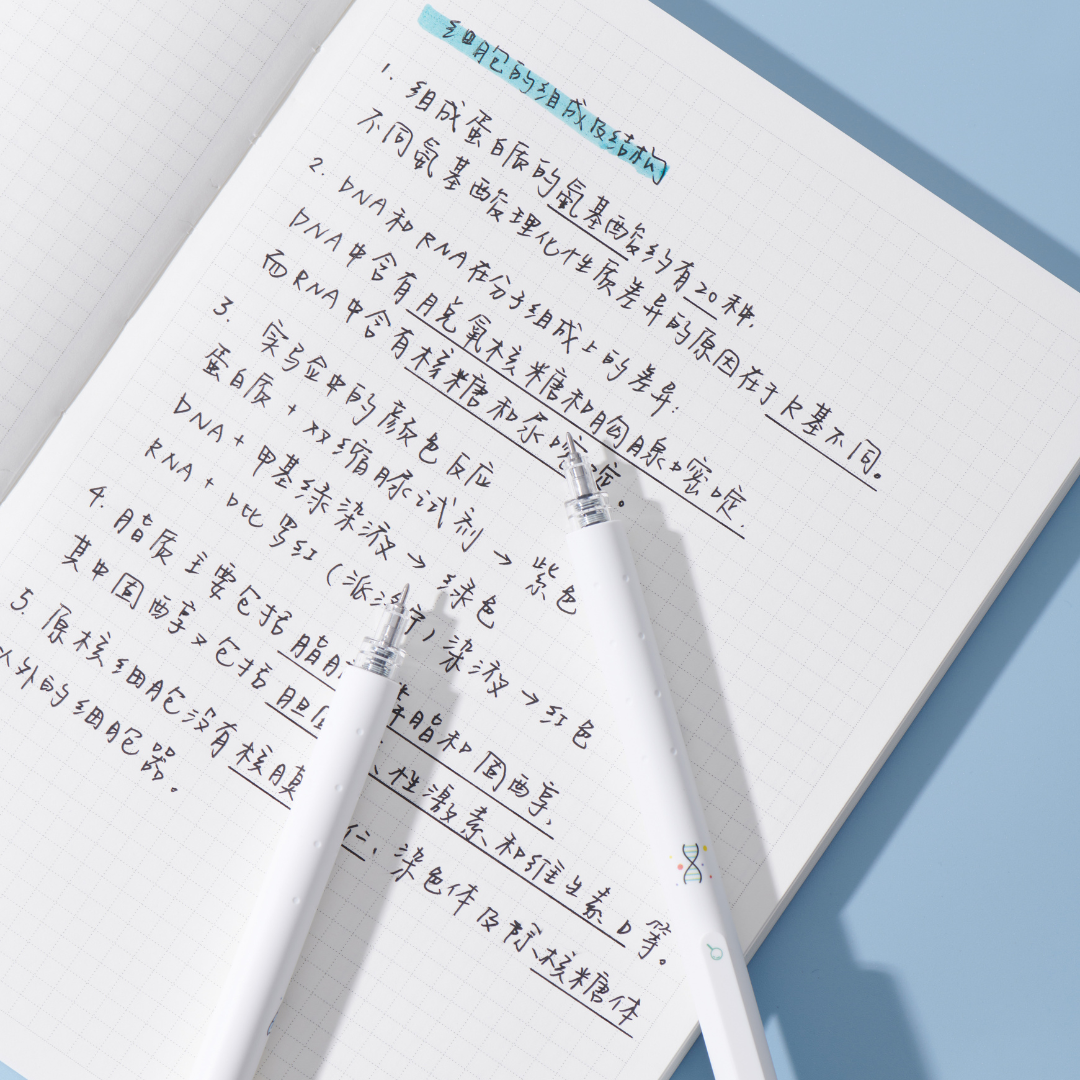 细胞的组成及结构
1. 组成蛋白质的氨基酸约有20种,
不同氨基酸理化性质差异的原因在于R基不同。
2. DNA和RNA在分子组成上的差异:
DNA中含有脱氧核糖和胸腺嘧啶.
而RNA中含有核糖和尿嘧啶。
3. 实验中的颜色反应
蛋白质 + 双缩脲试剂 → 紫色
DNA + 甲基绿染液 → 绿色
RNA + 吡罗红(派洛宁)染液 → 红色
4. 脂质主要包括脂肪 脂和固醇,
其中固醇又包括胆固 、性激素和维生素D等。
5. 原核细胞没有核膜 仁、染色体及除核糖体
以外的细胞器。